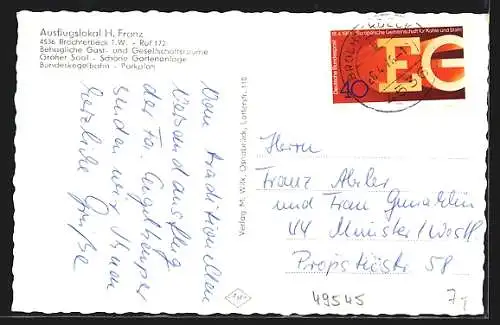 Ausflugslokal H. Franz
4536 Brochterbeck T.W. - Ruf 172
Behagliche Gast- und Gesellschaftsräume
Großer Saal - Schöne Gartenanlage
Bundeskegelbahn - Parkplan
Vom traditionellen
Versandausflug
der Fa. Engelkämper
senden wir Ihnen
herzliche Grüße
Verlag M. Wilk, Osnabrück, Lotterstr. 118
18.4.1951 Europäische Gemeinschaft für Kohle und Stahl
Deutsche Bundespost
40
EG
Herrn
Franz
und Frau Gemahlin
44 Münster/Westf
Propsteistr 58
49545